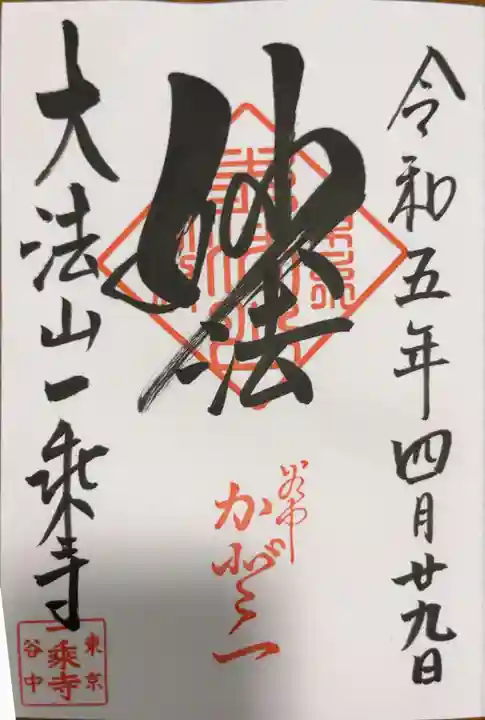 令和五年四月廿九日
妙法
谷中
大法山一乗寺
東京
一乗寺
谷中